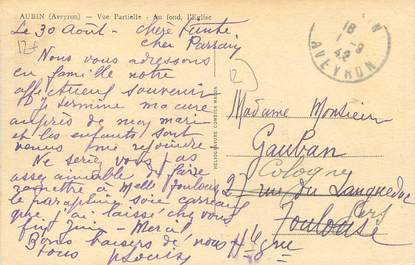 AUBIN (Aveyron) — Vue Partielle - Au fond, l'Eglise
Le 30 Août - chère tante
cher Parrain
Nous vous adressons
en famille notre
affectueux souvenir
Je termine ma cure
auprès de mon mari
et les enfants sont
venus me rejoindre.
Ne seriez vous pas
assez aimable de faire
remettre à Melle Toulouse
le parapluie soie carreaux
que j'ai laissé chez vous
fin Juin - Merci
Bons baisers de nous
tous
12
18
AVEYRON
Madame Monsieur
Gauban
Cologne
2 rue du Languedoc
Toulouse
Gers
Hte Gne